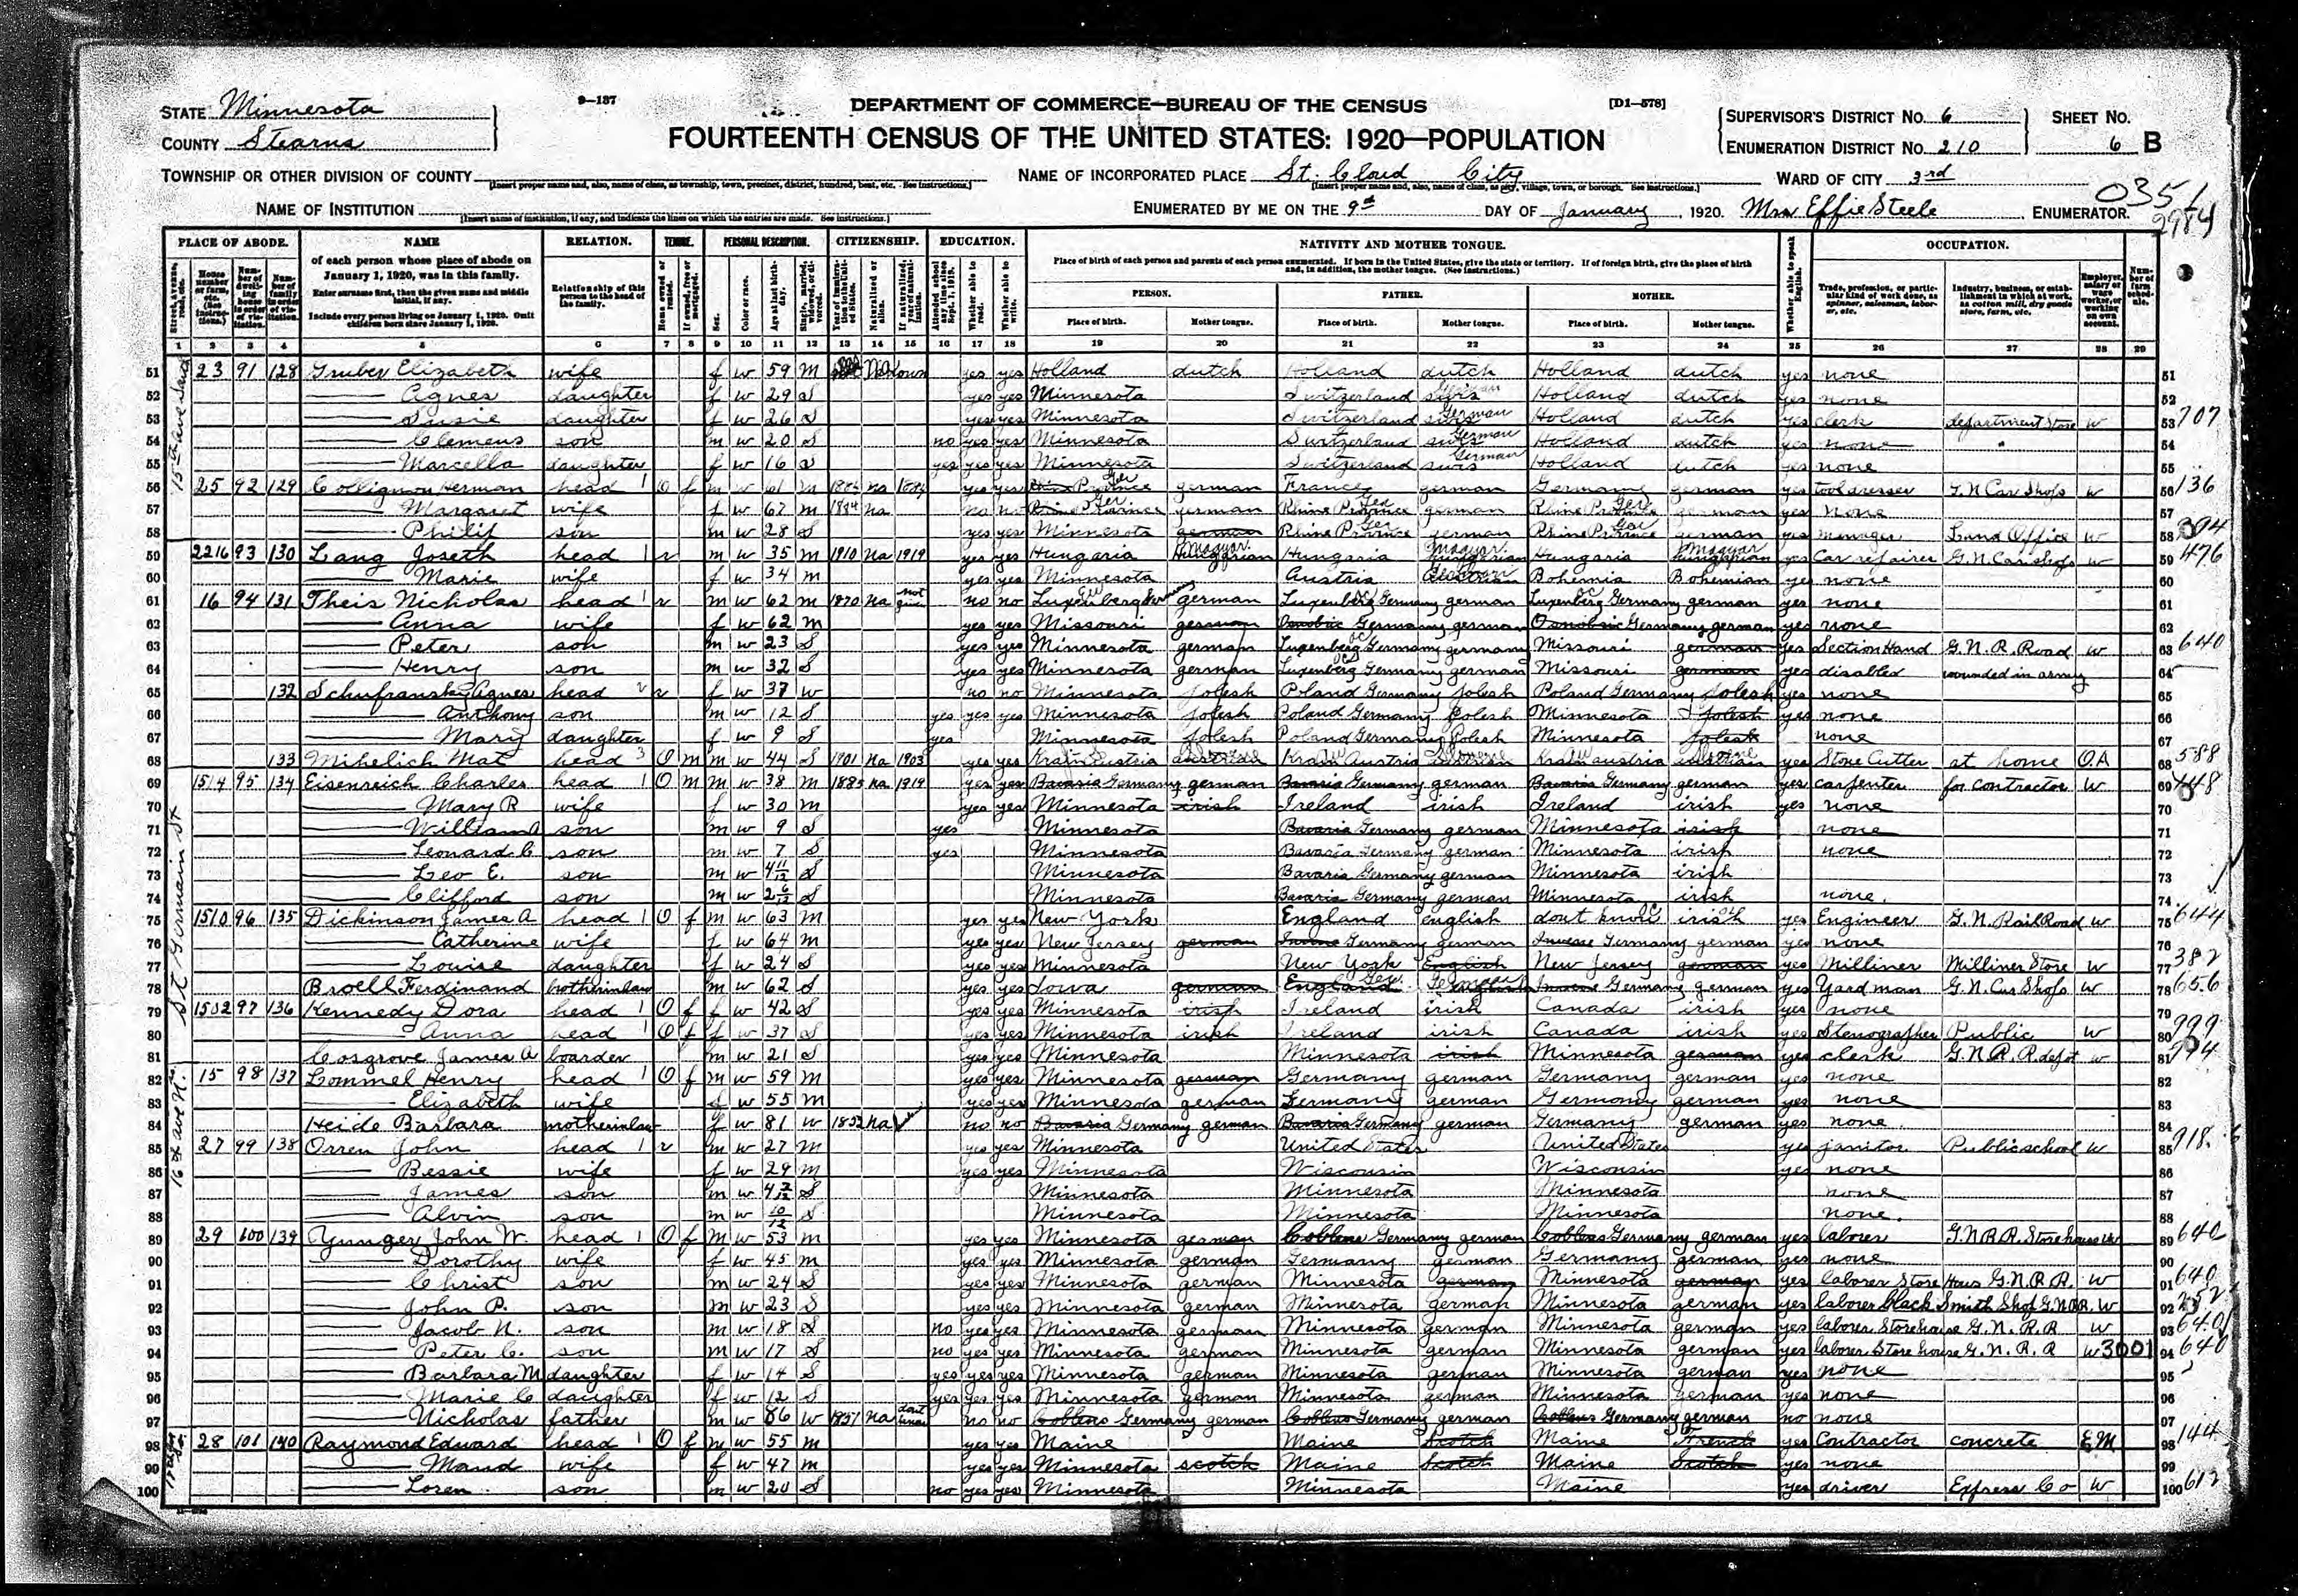 STATE Minnesota
COUNTY Stearns
9-137
DEPARTMENT OF COMMERCE—BUREAU OF THE CENSUS
[D1-578]
FOURTEENTH CENSUS OF THE UNITED STATES: 1920—POPULATION
SUPERVISOR'S DISTRICT No. 6
ENUMERATION DISTRICT No. 210
SHEET No. 6 B
TOWNSHIP OR OTHER DIVISION OF COUNTY
[Insert proper name and, also, name of class, as township, town, precinct, district, hundred, beat, etc. See instructions.]
NAME OF INCORPORATED PLACE St. Cloud City
[Insert proper name and, also, name of class, as city, village, town, or borough. See instructions.]
WARD OF CITY 3rd
0351
2984
NAME OF INSTITUTION
[Insert name of institution, if any, and indicate the lines on which the entries are made. See instructions.]
ENUMERATED BY ME ON THE 9th DAY OF January, 1920. Mrs Effie Steele, ENUMERATOR.
PLACE OF ABODE. NAME RELATION. TENURE. PERSONAL DESCRIPTION. CITIZENSHIP. EDUCATION. NATIVITY AND MOTHER TONGUE. OCCUPATION.
of each person whose place of abode on January 1, 1920, was in this family.
Enter surname first, then the given name and middle initial, if any.
Include every person living on January 1, 1920. Omit children born since January 1, 1920.
Relationship of this person to the head of the family.
Place of birth of each person and parents of each person enumerated. If born in the United States, give the state or territory. If of foreign birth, give the place of birth and, in addition, the mother tongue. (See instructions.)
PERSON. FATHER. MOTHER.
Place of birth. Mother tongue. Place of birth. Mother tongue. Place of birth. Mother tongue.
Whether able to speak English.
Trade, profession, or particular kind of work done, as spinner, salesman, laborer, etc.
Industry, business, or establishment in which at work, as cotton mill, dry goods store, farm, etc.
Employer, salary or wage worker, or working on own account.
Number of farm schedule.
1 2 3 4 5 6 7 8 9 10 11 12 13 14 15 16 17 18 19 20 21 22 23 24 25 26 27 28 29
51 23 91 128 Gruber Elizabeth wife f w 59 m yes yes Holland dutch Holland dutch Holland dutch yes none 51
52 Agnes daughter f w 29 S yes yes Minnesota Switzerland swis Holland dutch yes none 52
53 Susie daughter f w 26 S yes yes Minnesota Switzerland swis German Holland dutch yes clerk department Store w 53 707
54 Clemens son m w 20 S no yes yes Minnesota Switzerland swis German Holland dutch yes none 54
55 Marcella daughter f w 16 S yes yes yes Minnesota Switzerland swis German Holland dutch yes none 55
56 25 92 129 Collignon Herman head 1 O f m w 61 m na yes yes Province german France german Germany german yes tool dresser G.N Car Shops w 56 136
57 Margaret wife f w 67 m 1884 na no no Rhine Province german Rhine Province german Rhine Province german yes none 57
58 Philip son m w 28 S yes yes Minnesota german Rhine Province german Rhine Province german yes manager Land Office w 58 394
59 2216 93 130 Lang Joseth head 1 r m w 35 m 1910 Na 1919 yes yes Hungaria Magyar Hungaria Magyar Hungaria Magyar yes Car repairer G.N. Car Shops w 59 476
60 Marie wife f w 34 m yes yes Minnesota Austria Bohemia Bohemian yes none 60
61 16 94 131 Theis Nicholas head 1 r m w 62 m 1870 Na not given no no Luxenberg german Luxenberg Germany german Luxenberg Germany german yes none 61
62 Anna wife f w 62 m yes yes Missouri german Germany german Germany german yes none 62
63 Peter son m w 23 S yes yes Minnesota german Luxenberg Germany german Missouri german yes Section Hand G.N.R. Road w 63 640
64 Henry son m w 32 S yes yes Minnesota german Luxenberg Germany german Missouri german yes disabled wounded in army 64
65 132 Schufransky Agnes head 2 r f w 37 w no no Minnesota Polesh Poland Germany Polesh Poland Germany Polesh yes none 65
66 Anthony son m w 12 S yes yes yes Minnesota Polesh Poland Germany Polesh Minnesota Polesh yes none 66
67 Mary daughter f w 9 S yes Minnesota Polesh Poland Germany Polesh Minnesota Polesh none 67
68 133 Mihelich Mat head 3 O m m w 44 S 1901 Na 1903 yes yes Krain Austria Krain Austria Krain austria yes Stone Cutter at home OA 68 588
69 1514 95 134 Eisenreich Charles head 1 O m m w 38 m 1885 na 1919 yes yes Bavaria Germany german Bavaria Germany german Bavaria Germany german yes carpenter for contractor w 69 448
70 Mary R wife f w 30 m yes yes Minnesota irish Ireland irish Ireland irish yes none 70
71 William A son m w 9 S yes Minnesota Bavaria Germany german Minnesota irish none 71
72 Leonard C son m w 7 S yes Minnesota Bavaria Germany german Minnesota irish none 72
73 Leo E. son m w 4 11/12 S Minnesota Bavaria Germany german Minnesota irish 73
74 Clifford son m w 2 6/12 S Minnesota Bavaria Germany german Minnesota irish none. 74
75 1510 96 135 Dickinson James A head 1 O f m w 63 m yes yes New York England english dont know irish yes Engineer G.N. RailRoad w 75 644
76 Catherine wife f w 64 m yes yes New Jersey german Germany german Germany german yes none 76
77 Louise daughter f w 24 S yes yes Minnesota New York English New Jersey german yes Milliner Milliner Store w 77 382
78 Broell Ferdinand brotherinlaw m w 62 S yes yes Iowa german England Germany german yes Yard man G.N. Car Shops w 78 656
79 1502 97 136 Kennedy Dora head 1 O f f w 42 S yes yes Minnesota irish Ireland irish Canada irish yes none 79
80 Anna head 1 O f f w 37 S yes yes Minnesota irish Ireland irish Canada irish yes Stenographer Public w 80 999
81 Cosgrove James A boarder m w 21 S yes yes Minnesota Minnesota irish Minnesota german yes clerk G.N.R.R. depot w 81
82 15 98 137 Lommel Henry head 1 O f m w 59 m yes yes Minnesota german Germany german Germany german yes none 82
83 Elizabeth wife f w 55 m yes yes Minnesota german Germany german Germany german yes none 83
84 Heide Barbara motherinlaw f w 81 w 1852 Na no no Bavaria Germany german Bavaria Germany german Germany german yes none. 84
85 27 99 138 Orren John head 1 r m w 27 m yes yes Minnesota United States United States yes janitor Public school w 85 918
86 Bessie wife f w 29 m yes yes Minnesota Wisconsin Wisconsin yes none 86
87 James son m w S Minnesota Minnesota Minnesota none 87
88 Alvin son m w 10/12 S Minnesota Minnesota Minnesota none. 88
89 29 100 139 Yunger John W. head 1 O f m w 53 m yes yes Minnesota german Coblens Germany german Coblens Germany german yes laborer G.N.R.R. Storehouse w 89 640
90 Dorothy wife f w 45 m yes yes Minnesota german Germany german Germany german yes none 90
91 Christ son m w 24 S yes yes Minnesota german Minnesota german Minnesota german yes laborer Store Hous G.N.R.R. w 91 640
92 John P. son m w 23 S yes yes Minnesota german Minnesota german Minnesota german yes laborer black Smith Shop G.N.R.R. w 92 252
93 Jacob N. son m w 18 S no yes yes Minnesota german Minnesota german Minnesota german yes laborer Storehouse G.N.R.R w 93 640
94 Peter C. son m w 17 S no yes yes Minnesota german Minnesota german Minnesota german yes laborer Store house G.N.R.R w 3001 94 640
95 Barbara M daughter f w 14 S yes yes yes Minnesota german Minnesota german Minnesota german yes none 95
96 Marie C daughter f w 12 S yes yes yes Minnesota german Minnesota german Minnesota german yes none 96
97 Nicholas father m w 86 w 1851 Na no no Coblens Germany german Coblens Germany german Coblens Germany german no none 97
98 28 101 140 Raymond Edward head 1 O f m w 55 m yes yes Maine Maine Scotch Maine French yes Contractor concrete EM 98 144
99 Maud wife f w 47 m yes yes Minnesota scotch Maine Scotch Maine Scotch yes none 99
100 Loren son m w 20 S no yes yes Minnesota Minnesota Maine yes driver Express Co w 100 612
St Germain St
16th ave N.